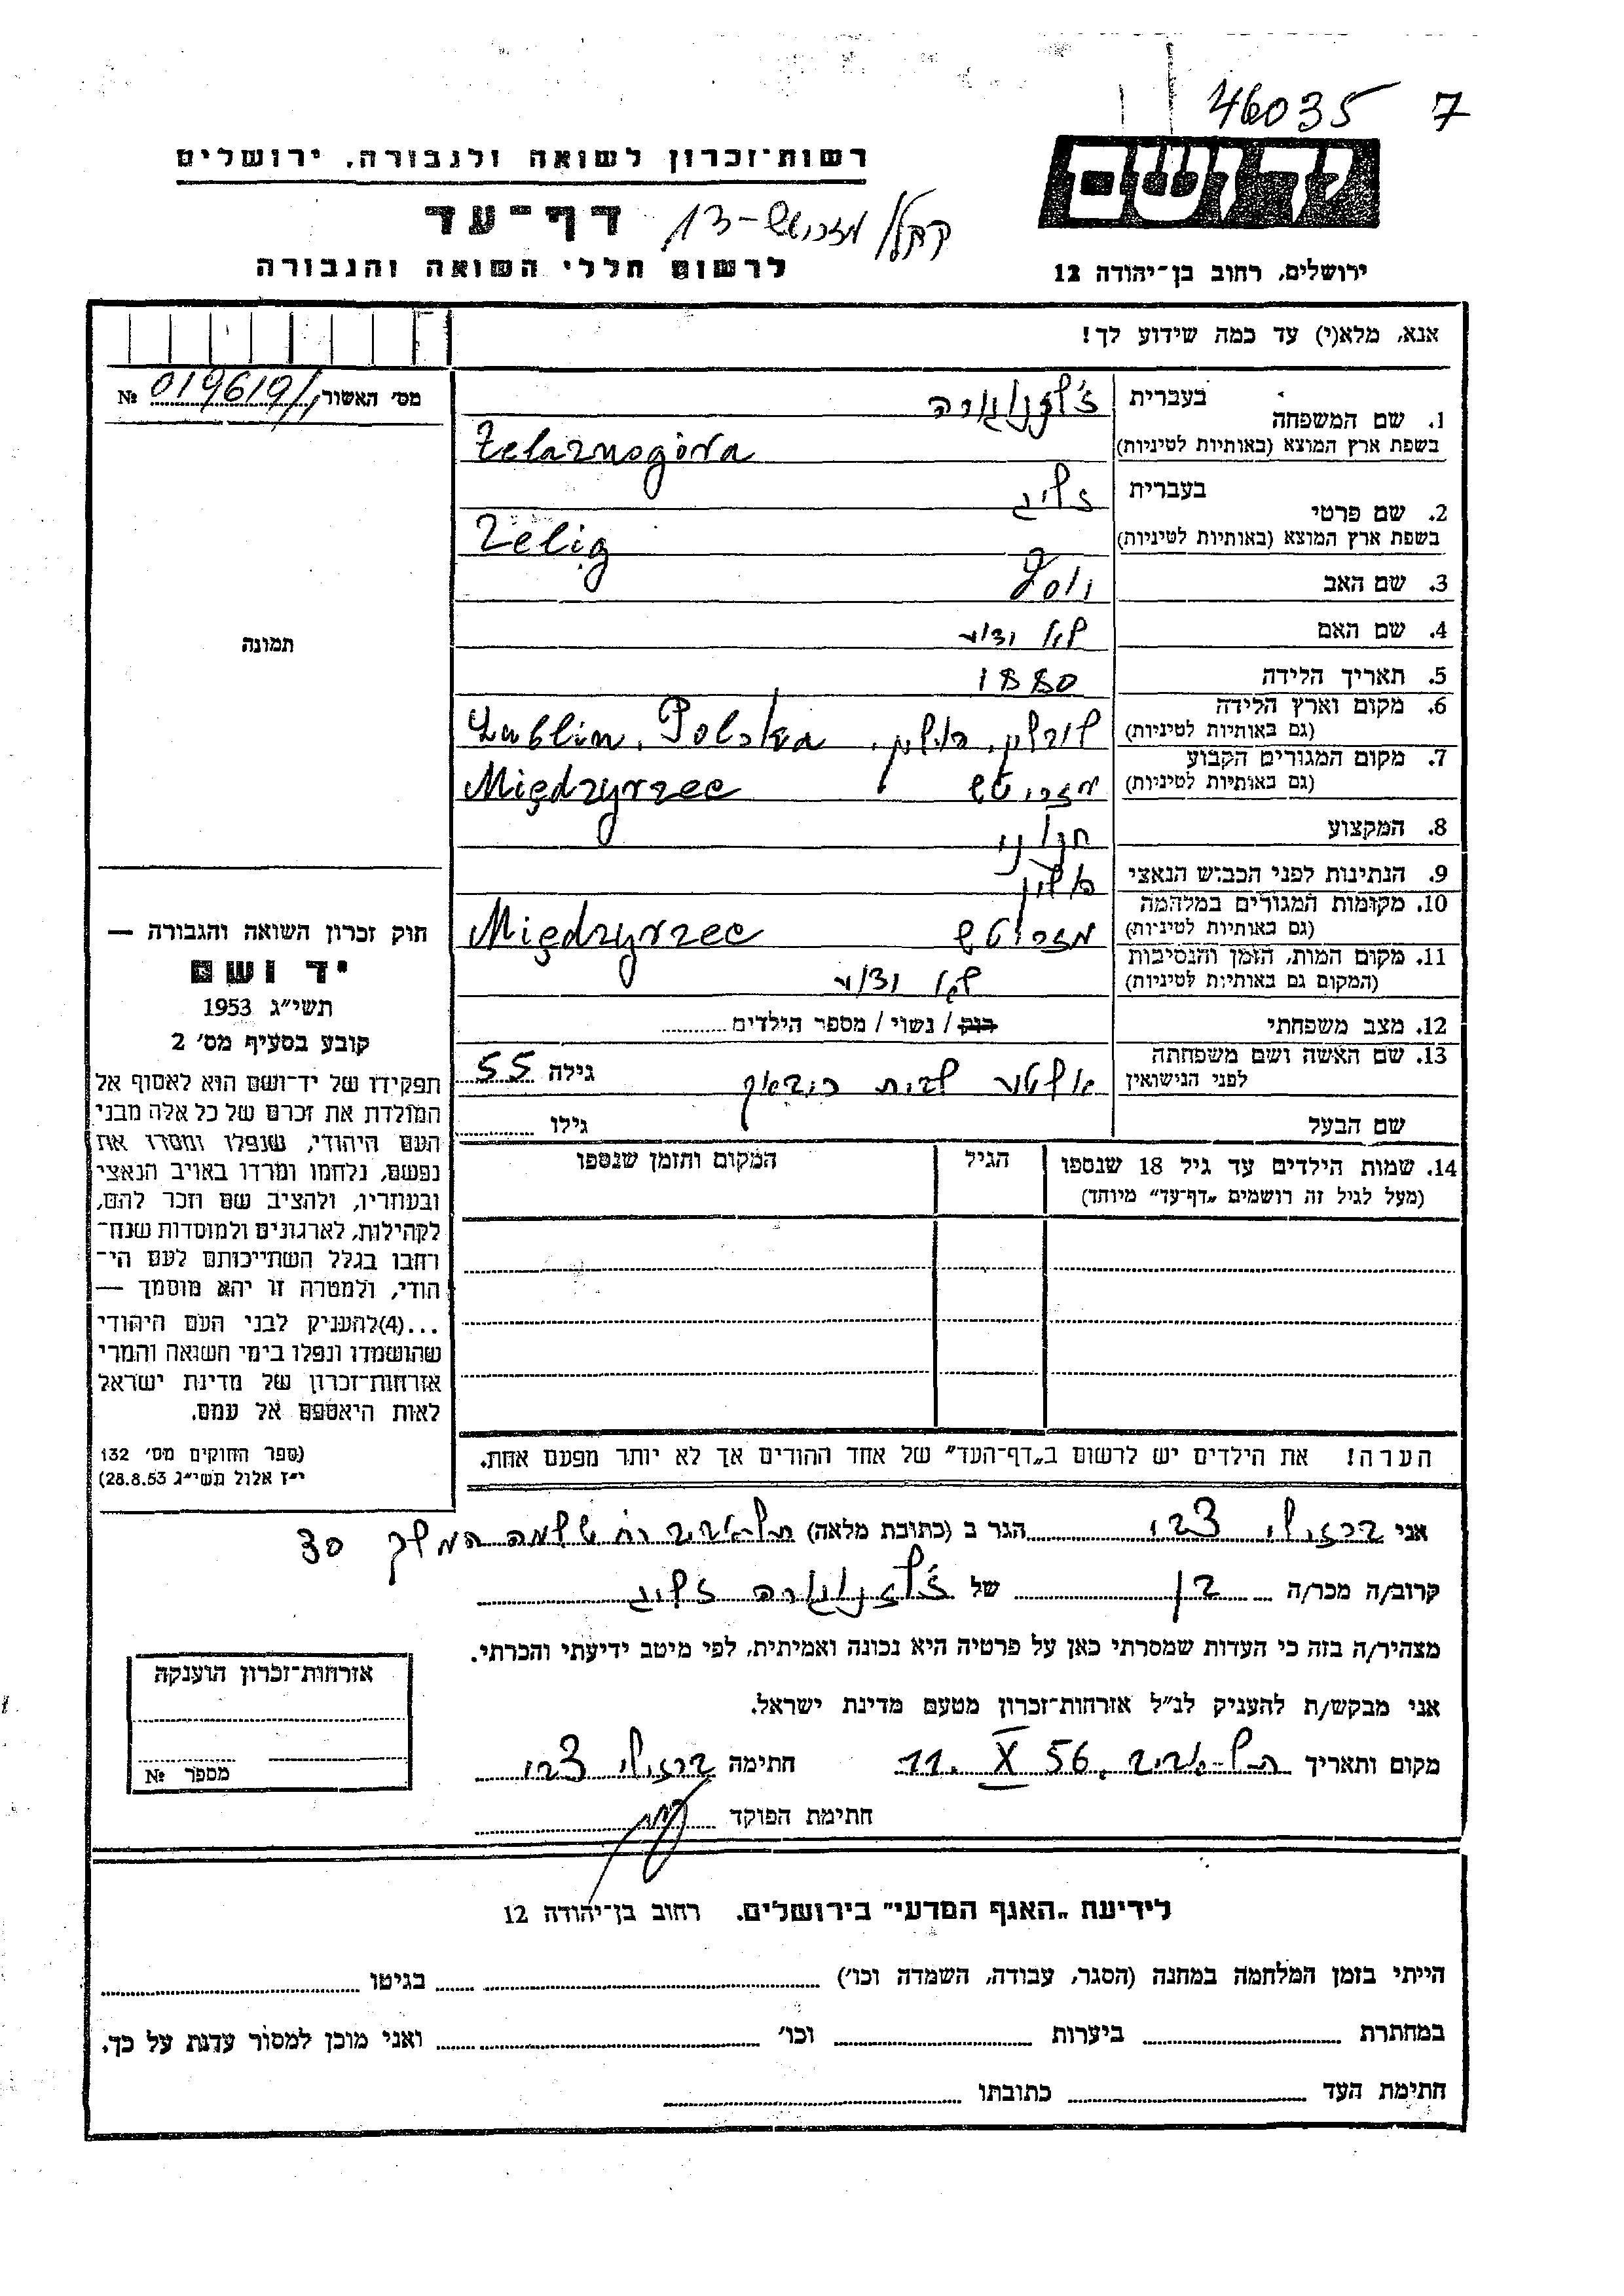 46035 7
יד ושם
רשות־זכרון לשואה ולגבורה. ירושלים
דף־עד
לרשום חללי השואה והגבורה
ירושלים, רחוב בן־יהודה 12
אנא, מלא(י) עד כמה שידוע לך!
מס׳ האשור 019619/1 №
תמונה
חוק זכרון השואה והגבורה —
יד ושם
תשי״ג 1953
קובע בסעיף מס׳ 2
תפקידו של יד־ושם הוא לאסוף אל
המולדת את זכרם של כל אלה מבני
העם היהודי, שנפלו ומסרו את
נפשם, נלחמו ומרדו באויב הנאצי
ובעוזריו, ולהציב שם וזכר להם,
לקהילות, לארגונים ולמוסדות שנח־
רחבו בגלל השתייכותם לעם הי־
הודי, ולמטרה זו יהא מוסמך —
...(4)להעניק לבני העם היהודי
שהושמדו ונפלו בימי השואה והמרי
אזרחות־זכרון של מדינת ישראל
לאות היאספם אל עמם.
(ספר החוקים מס׳ 132
י״ז אלול תשי״ג 28.8.53)
1. שם המשפחה
בעברית ז׳לזנוגורה
בשפת ארץ המוצא (באותיות לטיניות) Żelaznogóra
2. שם פרטי
בעברית זליג
בשפת ארץ המוצא (באותיות לטיניות) Zelig
3. שם האב יוסף
4. שם האם לא ידוע
5. תאריך הלידה 1880
6. מקום וארץ הלידה
(גם באותיות לטיניות) לובלין, פולין. Lublin, Polska
7. מקום המגורים הקבוע
(גם באותיות לטיניות) מזריטש Międzyrzec
8. המקצוע חנוני
9. הנתינות לפני הכבוש הנאצי פולין
10. מקומות המגורים במלחמה
(גם באותיות לטיניות) מזריטש Międzyrzec
11. מקום המות, הזמן והנסיבות
(המקום גם באותיות לטיניות) לא ידוע
12. מצב משפחתי רוק / נשוי / מספר הילדים
13. שם האשה ושם משפחתה
לפני הנישואין לבית גילה 55
שם הבעל גילו
14. שמות הילדים עד גיל 18 שנספו הגיל המקום והזמן שנספו
(מעל לגיל זה רושמים „דף־עד״ מיוחד)
הערה! את הילדים יש לרשום ב„דף־העד״ של אחד ההורים אך לא יותר מפעם אחת.
אני ברזילי צבי הגר ב (כתובת מלאה) תל־אביב רח׳ שלמה המלך 30
קרוב/ה מכר/ה בן של ז׳לזנוגורה זליג
מצהיר/ה בזה כי העדות שמסרתי כאן על פרטיה היא נכונה ואמיתית, לפי מיטב ידיעתי והכרתי.
אני מבקש/ת להעניק לנ״ל אזרחות־זכרון מטעם מדינת ישראל.
מקום ותאריך תל־אביב, 11. X 56 חתימה ברזילי צבי
חתימת הפוקד
אזרחות־זכרון הוענקה
מספר №
לידיעת „האגף המדעי״ בירושלים. רחוב בן־יהודה 12
הייתי בזמן המלחמה במחנה (הסגר, עבודה, השמדה וכו׳) בגיטו
במחתרת ביערות וכו׳ ואני מוכן למסור עדות על כך.
חתימת העד כתובתו